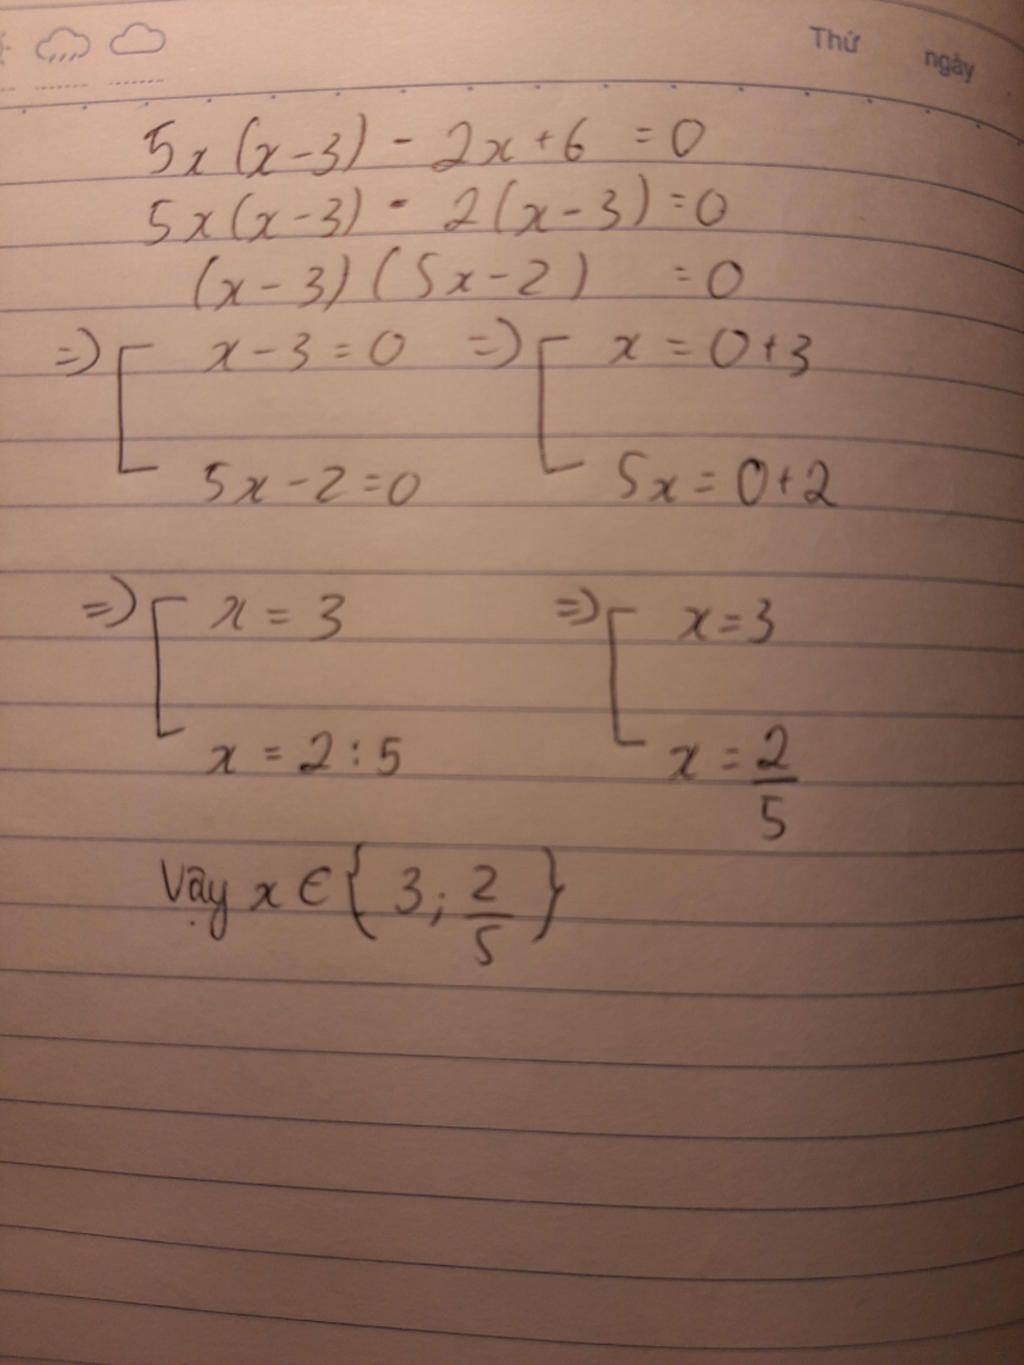 Thứ ngày
5x(x-3) - 2x+6 =0
5x(x-3) - 2(x-3)=0
(x-3)(5x-2) =0
=> [ x-3=0 => [ x = 0+3
5x-2=0 5x = 0+2
=> [ x = 3 => [ x=3
x = 2:5 x = 2/5
Vậy x ∈ { 3; 2/5 }